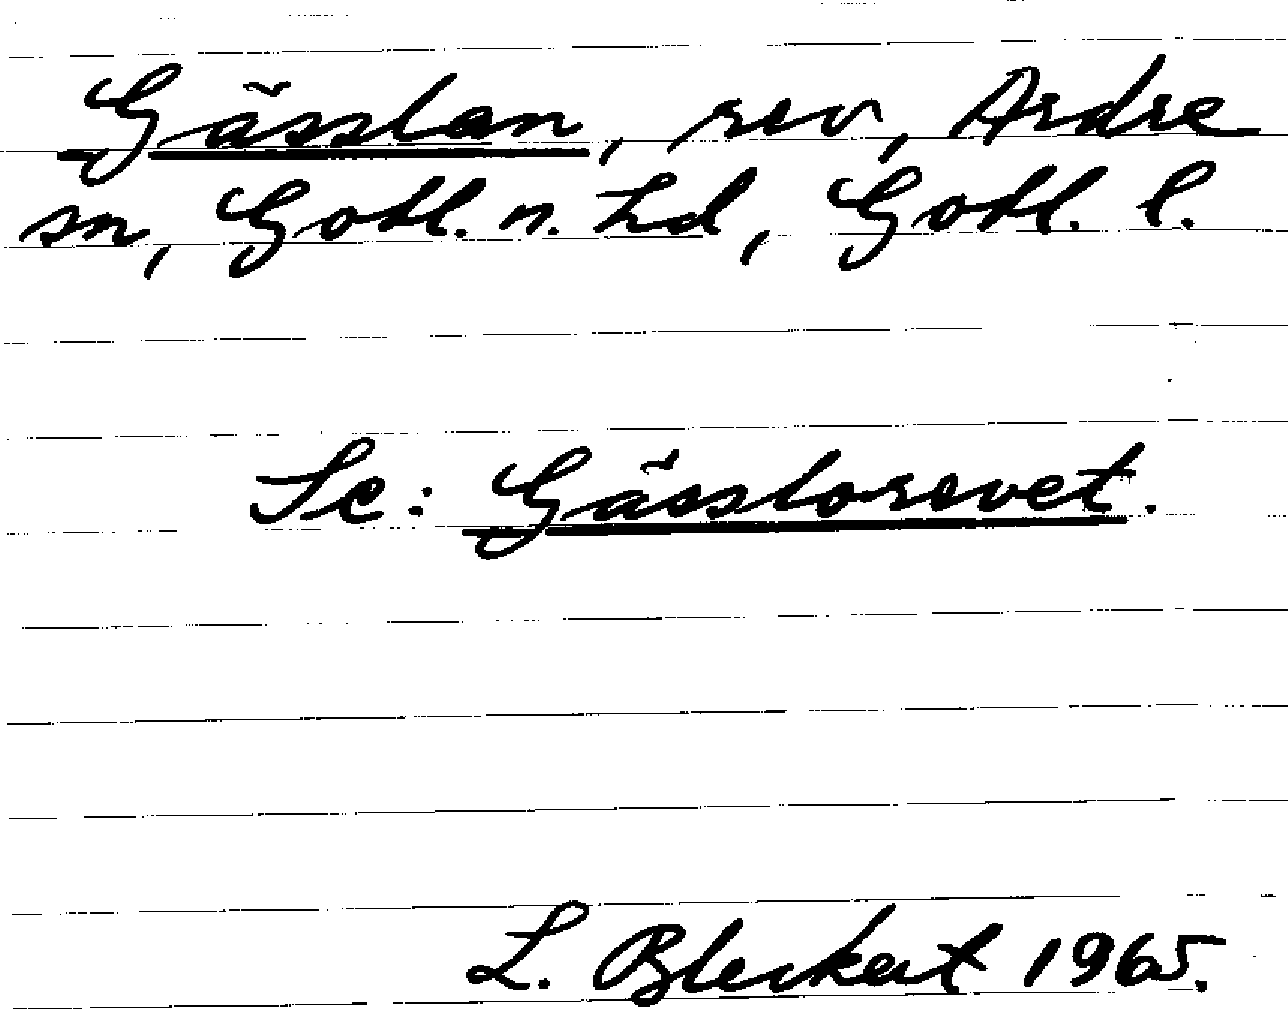 Gässlan, rev, Ardre
sn, Gotl. n. hd, Gotl. l.
Se: Gässlorevet.
L. Bleckert 1965.